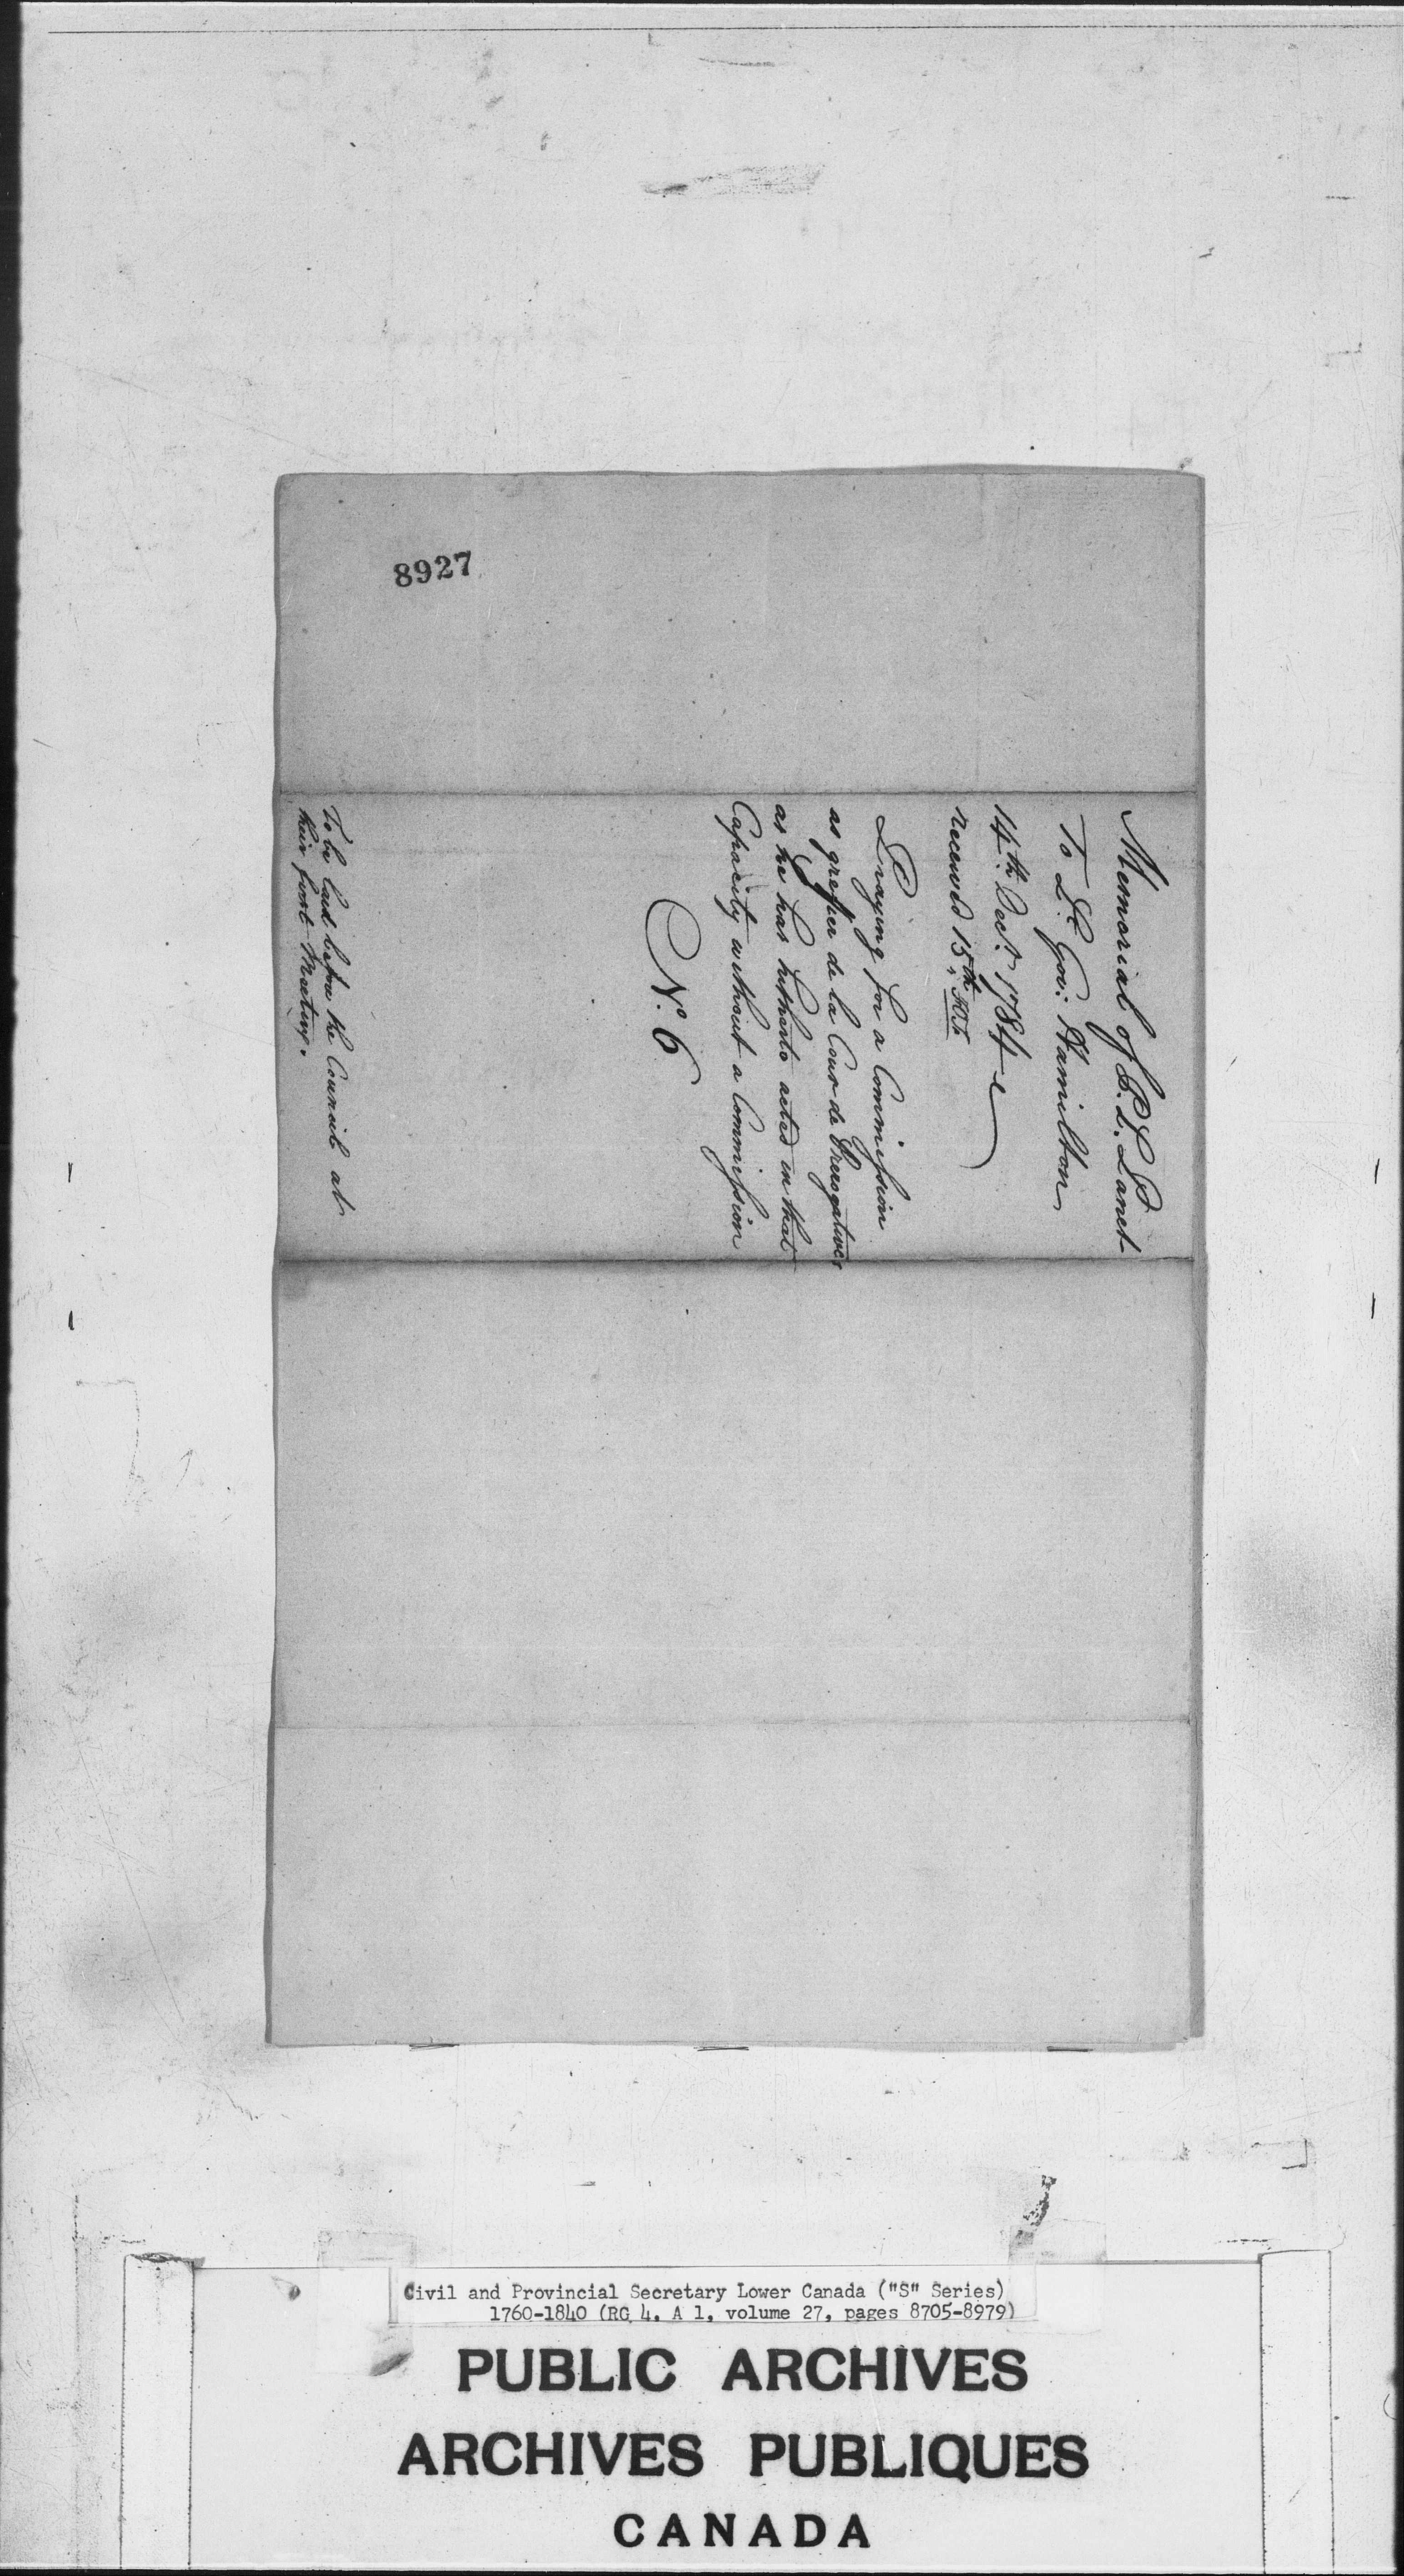 8927
Memorial of P. L. Panet
To Lt. Gov: Hamilton
14th. Decr. 1784
received 15th.
Praying for a Commission
as greffier de la Cour de Prerogatives
as he has hitherto acted in that
Capacity without a Commission
No. 6
To be laid before the Council at
their first Meeting.
Civil and Provincial Secretary Lower Canada ("S" Series)
1760-1840 (RG 4, A 1, volume 27, pages 8705-8979)
PUBLIC ARCHIVES
ARCHIVES PUBLIQUES
CANADA